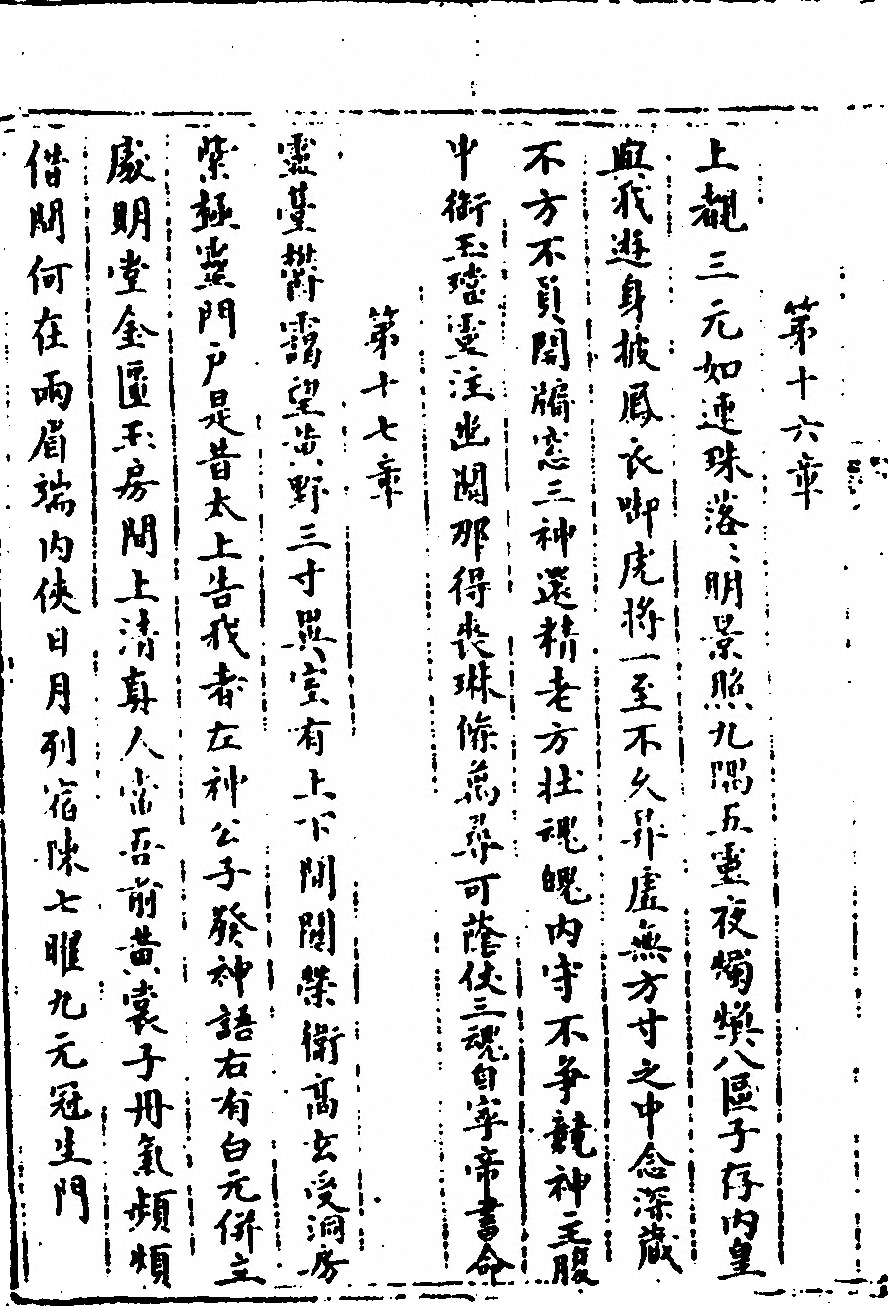 第十六章
上覩三元如連珠落〻明景照九隅五靈夜燭煥八區子存內皇
與我遊身披鳳衣啣虎將一至不久昇虛無方寸之中念深藏
不方不員閉牖窓三神還精老方壯魂魄內守不爭競神生腹
中銜玉璫靈注幽闕那得喪琳條萬尋可蔭仗三魂自寧帝書命
第十七章
靈臺欝靄望黃野三寸異室有上下間關榮衛高玄受洞房
紫極靈門戶是昔太上告我者左神公子發神語右有白元併立
處明堂金匱玉房間上清真人當吾前黃裳子丹氣頻煩
借問何在兩眉端內俠日月列宿陳七曜九元冠生門